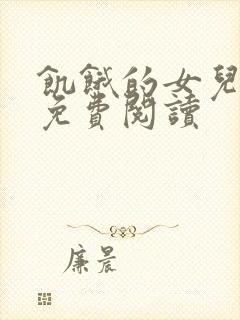 飢餓的女兒
免費閱讀
廉晨